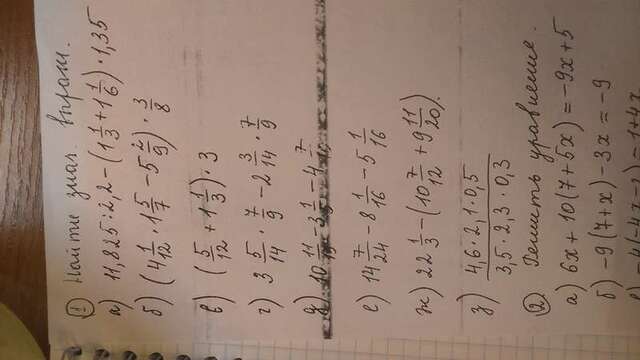 ① Найти знач. выраж.
а) 11,825 : 2,2 − (1 1/3 + 1 1/6) · 1,35
б) (4 1/12 · 1 5/7 − 5 2/9) · 3/8
в) (5/12 + 1 1/3) · 3
г) 3 5/14 · 7/9 − 2 3/14 · 7/9
д) 10 11/15 − 3 1/5 − 4 7/15
е) 14 7/24 − 8 1/16 − 5 1/16
ж) 22 1/3 − (10 7/12 + 9 11/20).
з) 4,6 · 2,1 · 0,5 / 3,5 · 2,3 · 0,3
② Решить уравнение.
а) 6x + 10(7+5x) = −9x + 5
б) −9(7+x) − 3x = −9
в) −4(−4x−1) − 1+4x